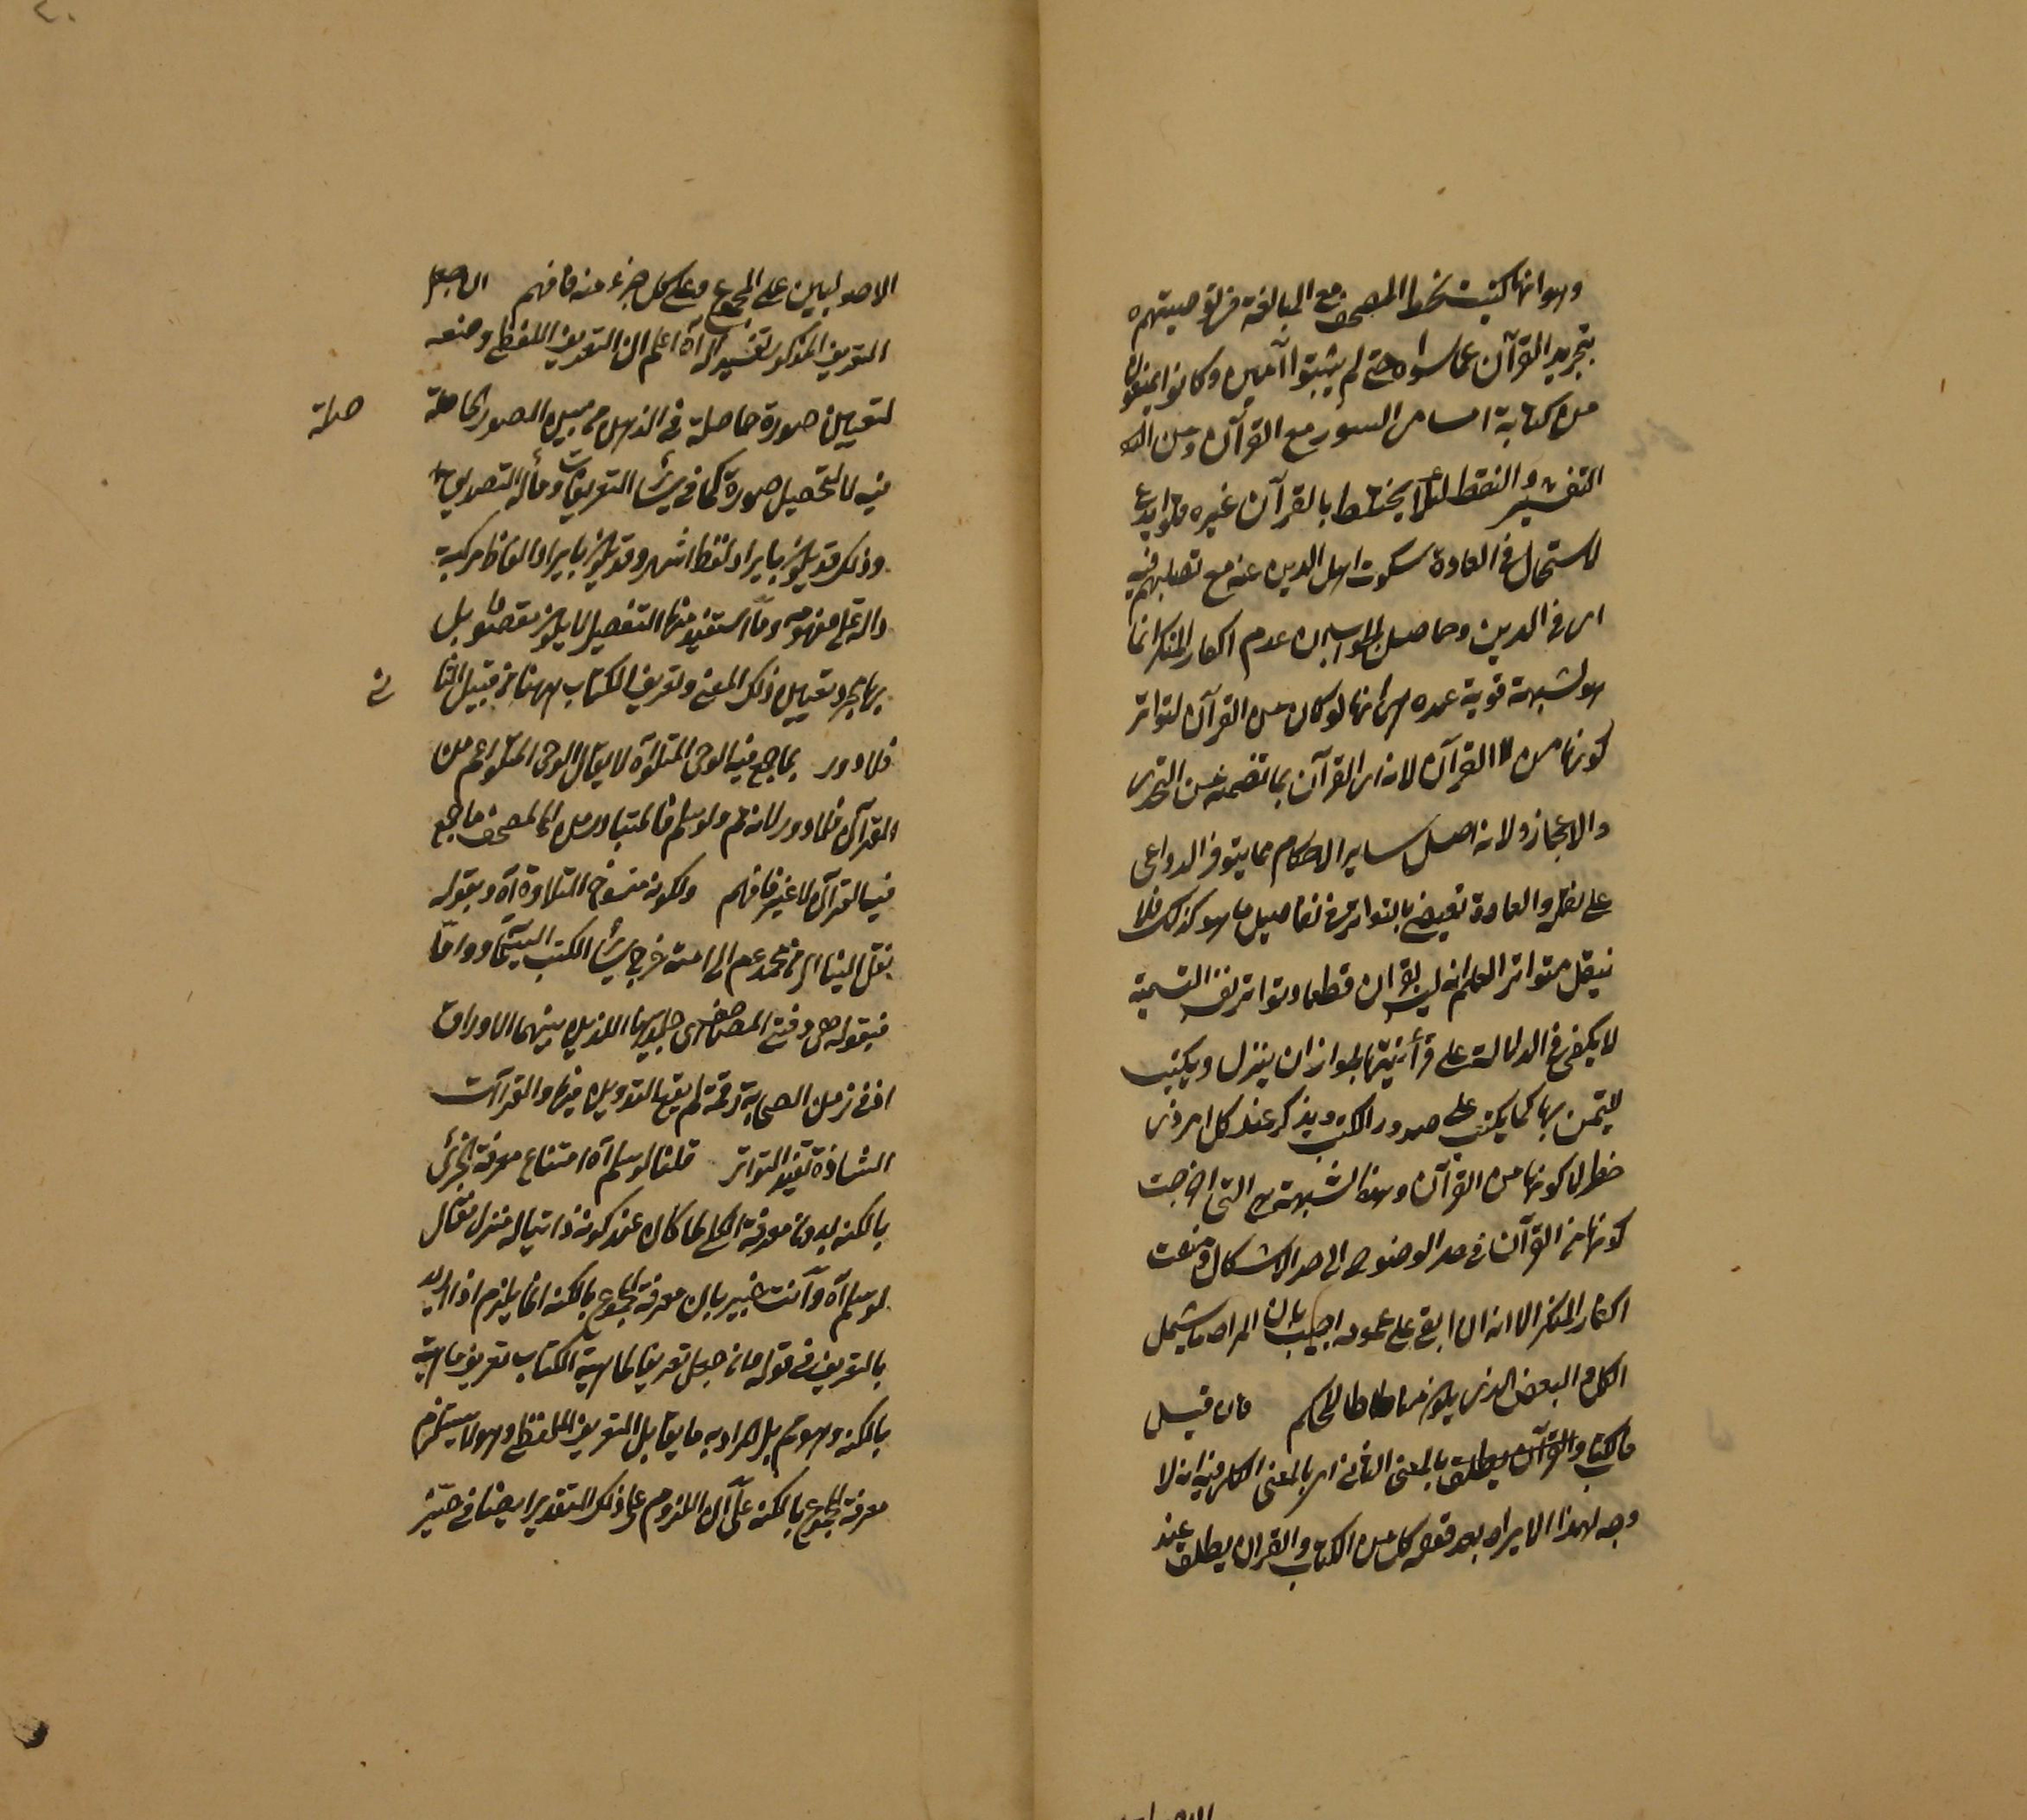 وهو انها كتبت بخط المصحف مع المبالغة في توصيتهم
بتجريد القرآن عما سواه حتى لم يثبتوا آمين وكانوا يمنعون
من كتابة اسامى السور مع القرآن ومن
التفسير والنقط لئلا يختلط بالقرآن غيره
لاستحال في العادة سكوت اهل الدين عنه مع تصلبهم فيه
اى في الدين وحاصل الجواب ان عدم اكفار المنكر انما
هو لشبهة قوية عنده هى انها لو كان من القرآن لتواتر
كونها من القرآن لانه اى القرآن بما تضمنه من التحدى
والاعجاز ولانه اصل ساير الاحكام مما يتوفر الدواعى
على نقله والعادة تقضى بالتواتر في تفاصيل ما هو كذلك فلا
ينقل متواترا لعلم انه ليس بقرآن قطعا وتواتر نفس التسمية
لا يكفى في الدلالة على قرآنيتها لجواز ان ينزل ويكتب
للتيمن بها كما يكتب على صدور الكتب ويذكر عند كل امر ذى
خطر لا كونها من القرآن وهذه الشبهة هى التى اخرجت
كونها من القرآن في حد الوضوح الى حد الاشكال ومنعت
اكفار المنكر الا انه ان ابقى على عمومه اجيب بان المراد ما يشمل
الكل والبعض الذى يكون مناطا للحكم فان قيل
فالكتاب والقرآن يطلق بالمعنى الثانى اى بالمعنى الكلى فيه انه لا
وجه لهذا الايراد بعد قوله كل من الكتاب والقرآن يطلق عند
الاصوليين على المجموع وعلى كل جزء منه فافهم
التعريف المذكور تفسير له آه اعلم ان التعريف اللفظى وضعه
لتعيين صورة حاصلة في الذهن من بين الصور الحاصلة
صلة
فيه لا لتحصيل صورة كما في سائر التعريفات ومآله التصديق
وذلك قد يكون بايراد لفظ اشهر وقد يكون بايراد الفاظ مركبة
دالة على مفهومه وما استفيد منها التفصيل لا يكون مقصودا بل
بها مجرد تعيين ذلك المعنى وتعريف الكتاب ههنا من قبيل الثا
نى
فلا دور بما جمع فيه الوحى المتلو آه لا يقال الوحى المتلو اعم من
القرآن فلا دور لانه ثم ولو سلم فالمتبادر من المصحف ما جمع
فيه القرآن لا غير فافهم ولكونه منسوخ التلاوة آه وبقوله
نقل الينا اى من محمد عم الى امته خرج سائر الكتب السماوية واما
فبقوله بين دفتى المصاحف اى جلديها اللذين بينهما الاوراق
اذ في زمن الصحابة رقمة لم يقع التدوين فيها والقرآات
الشاذة بقيد التواتر قلنا لو سلم آه امتناع معرفة الجزئى
بالكنه بدون معرفة الكلى لما كان عند كونه ذاتيا له منزل فقال
لو سلم آه وانت خبير بان معرفة المجموع بالكنه انما يلزم اذا اريد
بالتعريف في قوله فانه جعل تعريفا لماهية الكتاب تعريف ماهيته
بالكنه وهو ثم بل المراد به ما يقابل التعريف اللفظى وهو لا يستلزم
معرفة المجموع بالكنه على ان اللزوم على ذلك التقدير ايضا في حيز